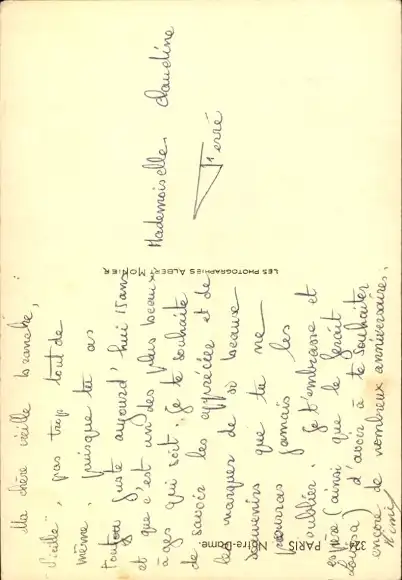 Ma chère vieille branche,
"Vieille", pas trop tout de
même, puisque tu as
juste aujourd'hui 15 ans
et que c'est un des plus beaux
âges qui soit. Je te souhaite
de savoir les apprécier et de
les marquer de si beaux
souvenirs que tu ne
pourras jamais les
oublier. Je t'embrasse et
espère (ainsi que le ferait
) d'avoir à te souhaiter
encore de nombreux anniversaires.
Rémi
Mademoiselle Claudine
Ferré
LES PHOTOGRAPHIES ALBERT MONIER
PARIS
Notre-Dame